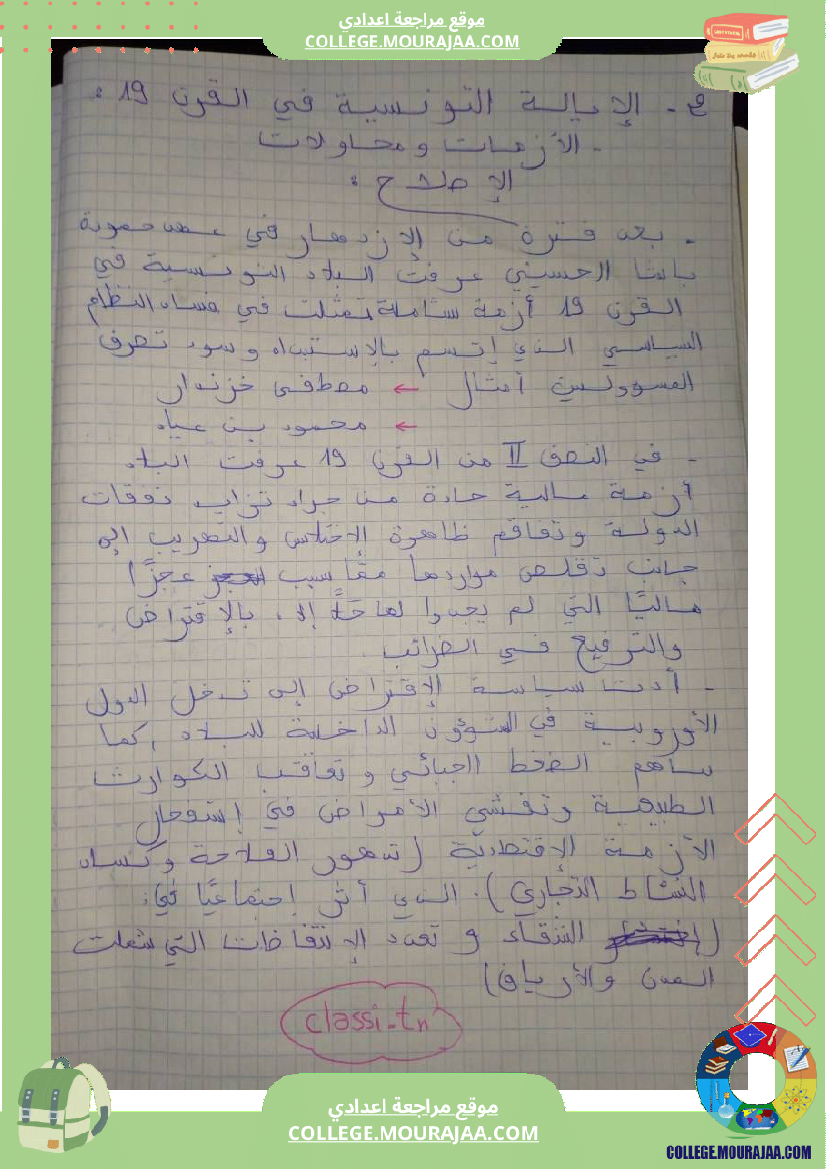 موقع مراجعة اعدادي
COLLEGE.MOURAJAA.COM
2 - الإيالة التونسية في القرن 19 :
- الأزمات ومحاولات
الإصلاح :
- بعد فترة من الإزدهار في عهد حمودة
باشا الحسيني عرفت البلاد التونسية في
القرن 19 أزمة شاملة تمثلت في فساد النظام
السياسي الذي إتسم بالإستبداد وسوء تصرف
المسؤولين أمثال ← مصطفى خزندار
← محمود بن عياد
- في النصف II من القرن 19 عرفت البلاد
أزمة مالية حادة من جراء تزايد نفقات
الدولة وتفاقم ظاهرة الإختلاس والتهريب إلى
جانب تقلص مواردها ممّا سبب عجزًا
ماليًا التي لم يجدوا لها حَلاً إلا بالإقتراض
والترفيع في الضرائب
- أدت سياسة الإقتراض إلى تدخل الدول
الأوروبية في الشؤون الداخلية للبلاد ، كما
ساهم الضغط الجبائي وتعاقب الكوارث
الطبيعية وتفشي الأمراض في إستفحال
الأزمة الإقتصادية (تدهور الفلاحة وكساد
النشاط التجاري). الذي أثر إجتماعيًا في:
( الشقاء و تعدد الإنتفاضات التي شملت
المدن والأرياف)
classi-tn
موقع مراجعة اعدادي
COLLEGE.MOURAJAA.COM
COLLEGE.MOURAJAA.COM